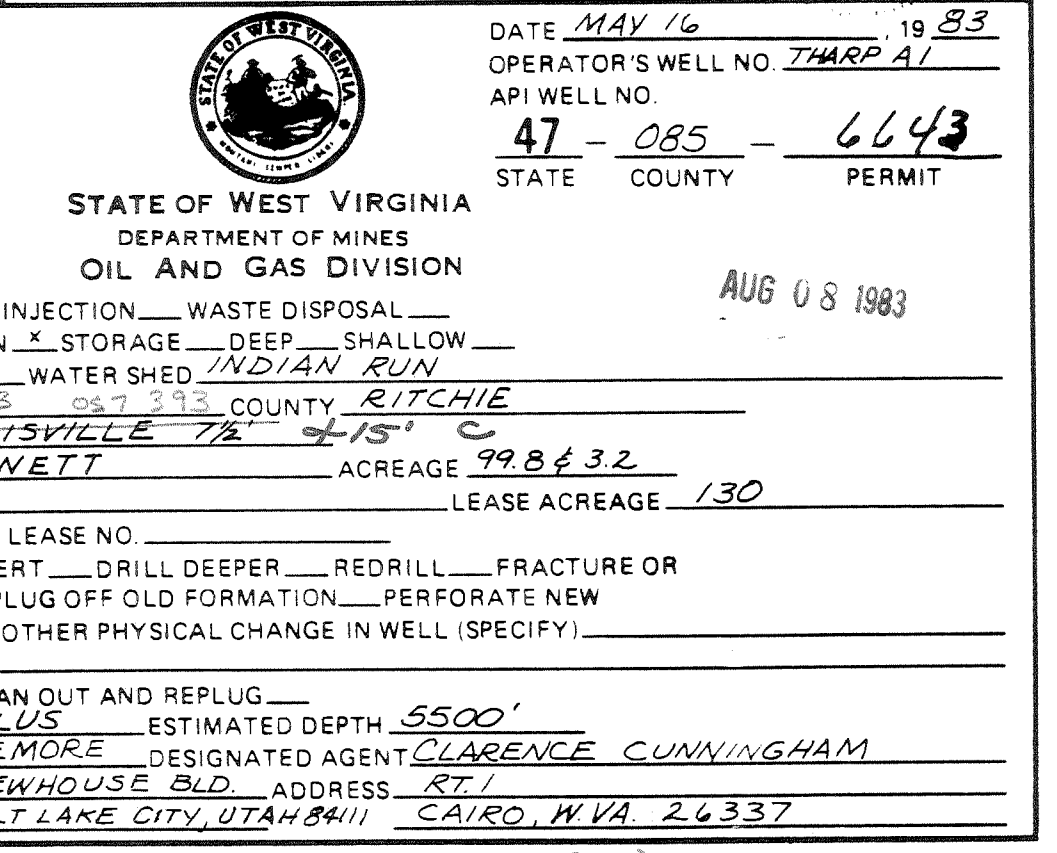 DATE MAY 16, 19 83
OPERATOR'S WELL NO. THARP A1
API WELL NO.
47 - 085 - 6643
STATE COUNTY PERMIT
STATE OF WEST VIRGINIA
MONTANI SEMPER LIBERI
STATE OF WEST VIRGINIA
DEPARTMENT OF MINES
OIL AND GAS DIVISION
AUG 08 1983
INJECTION___ WASTE DISPOSAL___
N x STORAGE___DEEP___SHALLOW___
___WATER SHED INDIAN RUN
3 057 393 COUNTY RITCHIE
ISVILLE 7½' +15' C
NETT ACREAGE 99.8 & 3.2
LEASE ACREAGE 130
LEASE NO.
ERT___DRILL DEEPER___REDRILL___FRACTURE OR
PLUG OFF OLD FORMATION___PERFORATE NEW
OTHER PHYSICAL CHANGE IN WELL (SPECIFY)
AN OUT AND REPLUG___
LUS ESTIMATED DEPTH 5500'
EMORE DESIGNATED AGENT CLARENCE CUNNINGHAM
EWHOUSE BLD. ADDRESS RT. 1
LT LAKE CITY, UTAH 84111 CAIRO, W.VA. 26337